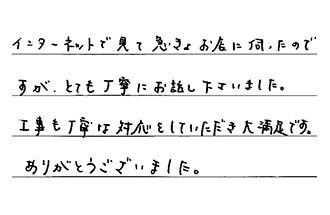 インターネットで見て急きょお店に伺ったので
すが、とても丁寧にお話し下さいました。
工事も丁寧な対応をしていただき大満足です。
ありがとうございました。